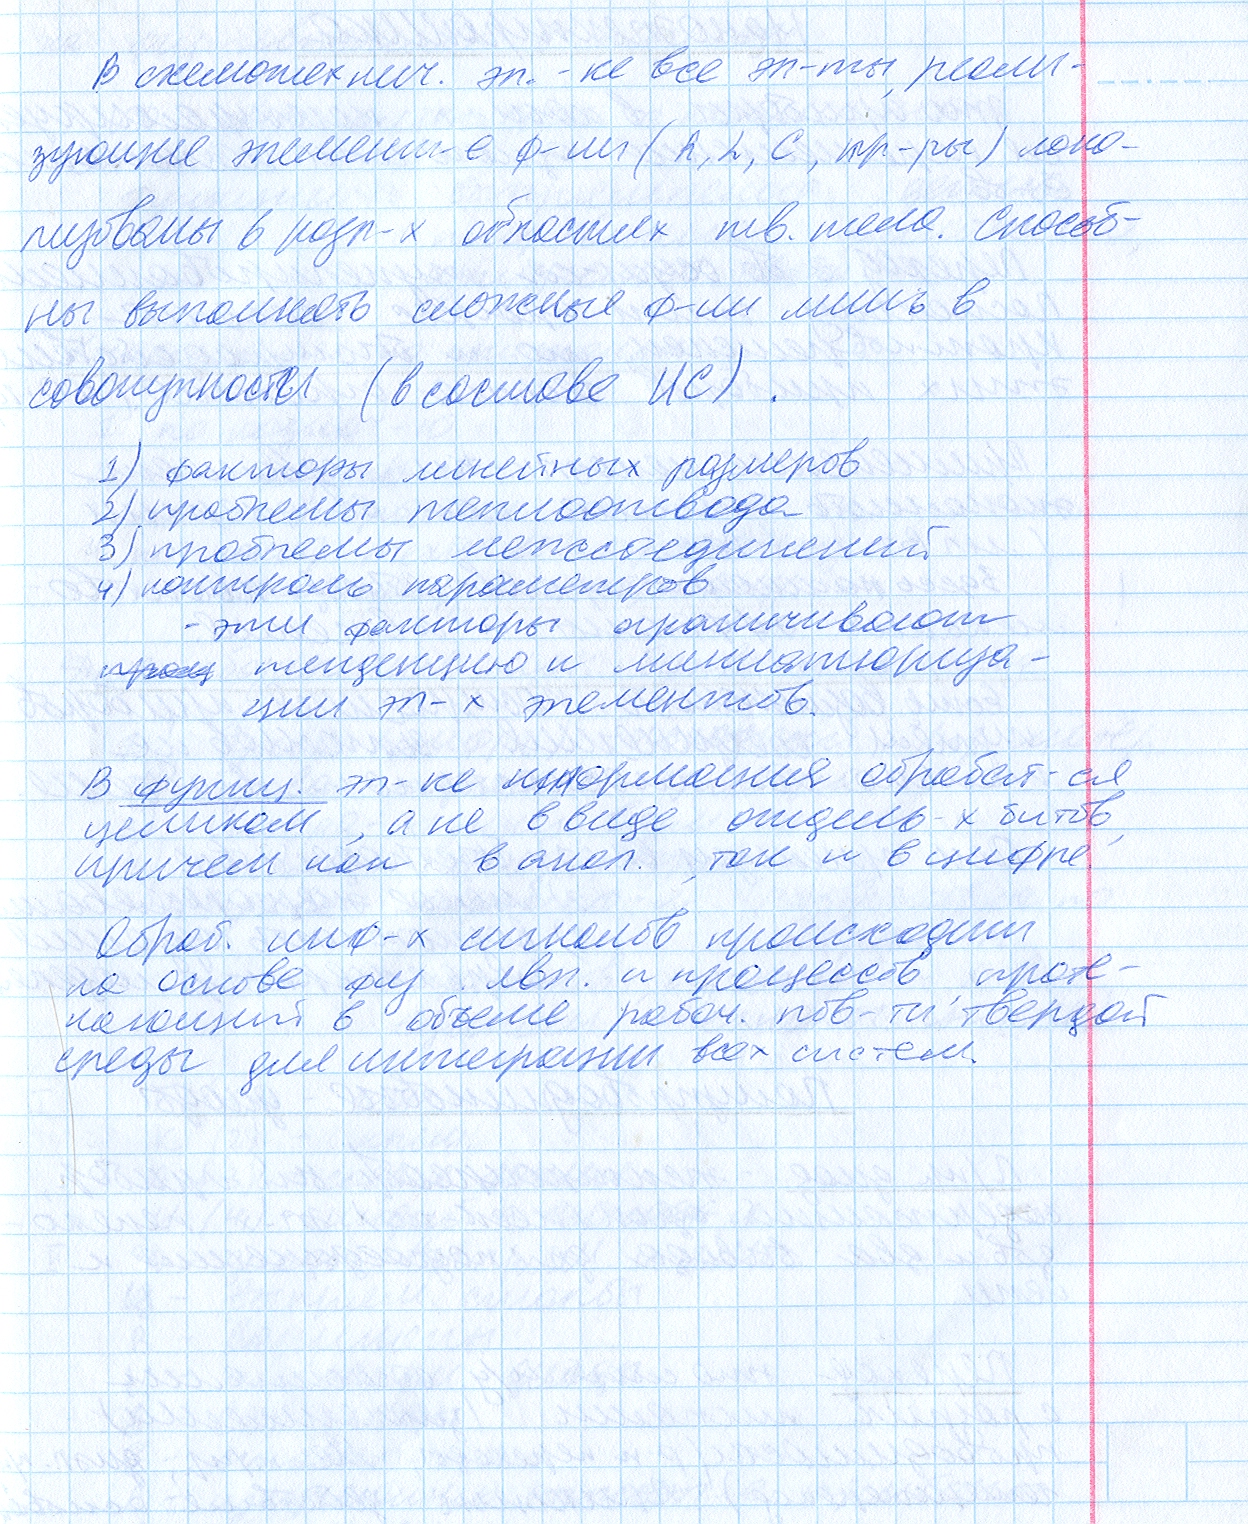 В схемотехнич. эл.-ке все эл-ты, реали-
зующие элемент-е ф-ии (R, L, C, тр-ры) лока-
лизованы в разл-х областях тв. тела. Способ-
ны выполнять сложные ф-ии лишь в
совокупности (в составе ИС).
1) факторы линейных размеров
2) проблемы теплоотвода
3) проблемы межсоединений
4) контроль параметров
- эти факторы ограничивают
тенденцию и миниатюриза-
ции эл-х элементов.
В функц. эл-ке информация обрабат-ся
целиком, а не в виде отдель-х битов,
причем как в анал., так и в цифре.
Обраб. инф-х сигналов происходит
на основе физ. явл. и процессов проте-
кающий в объеме рабоч. пов-ти твердой
среды для интеграции всех систем.